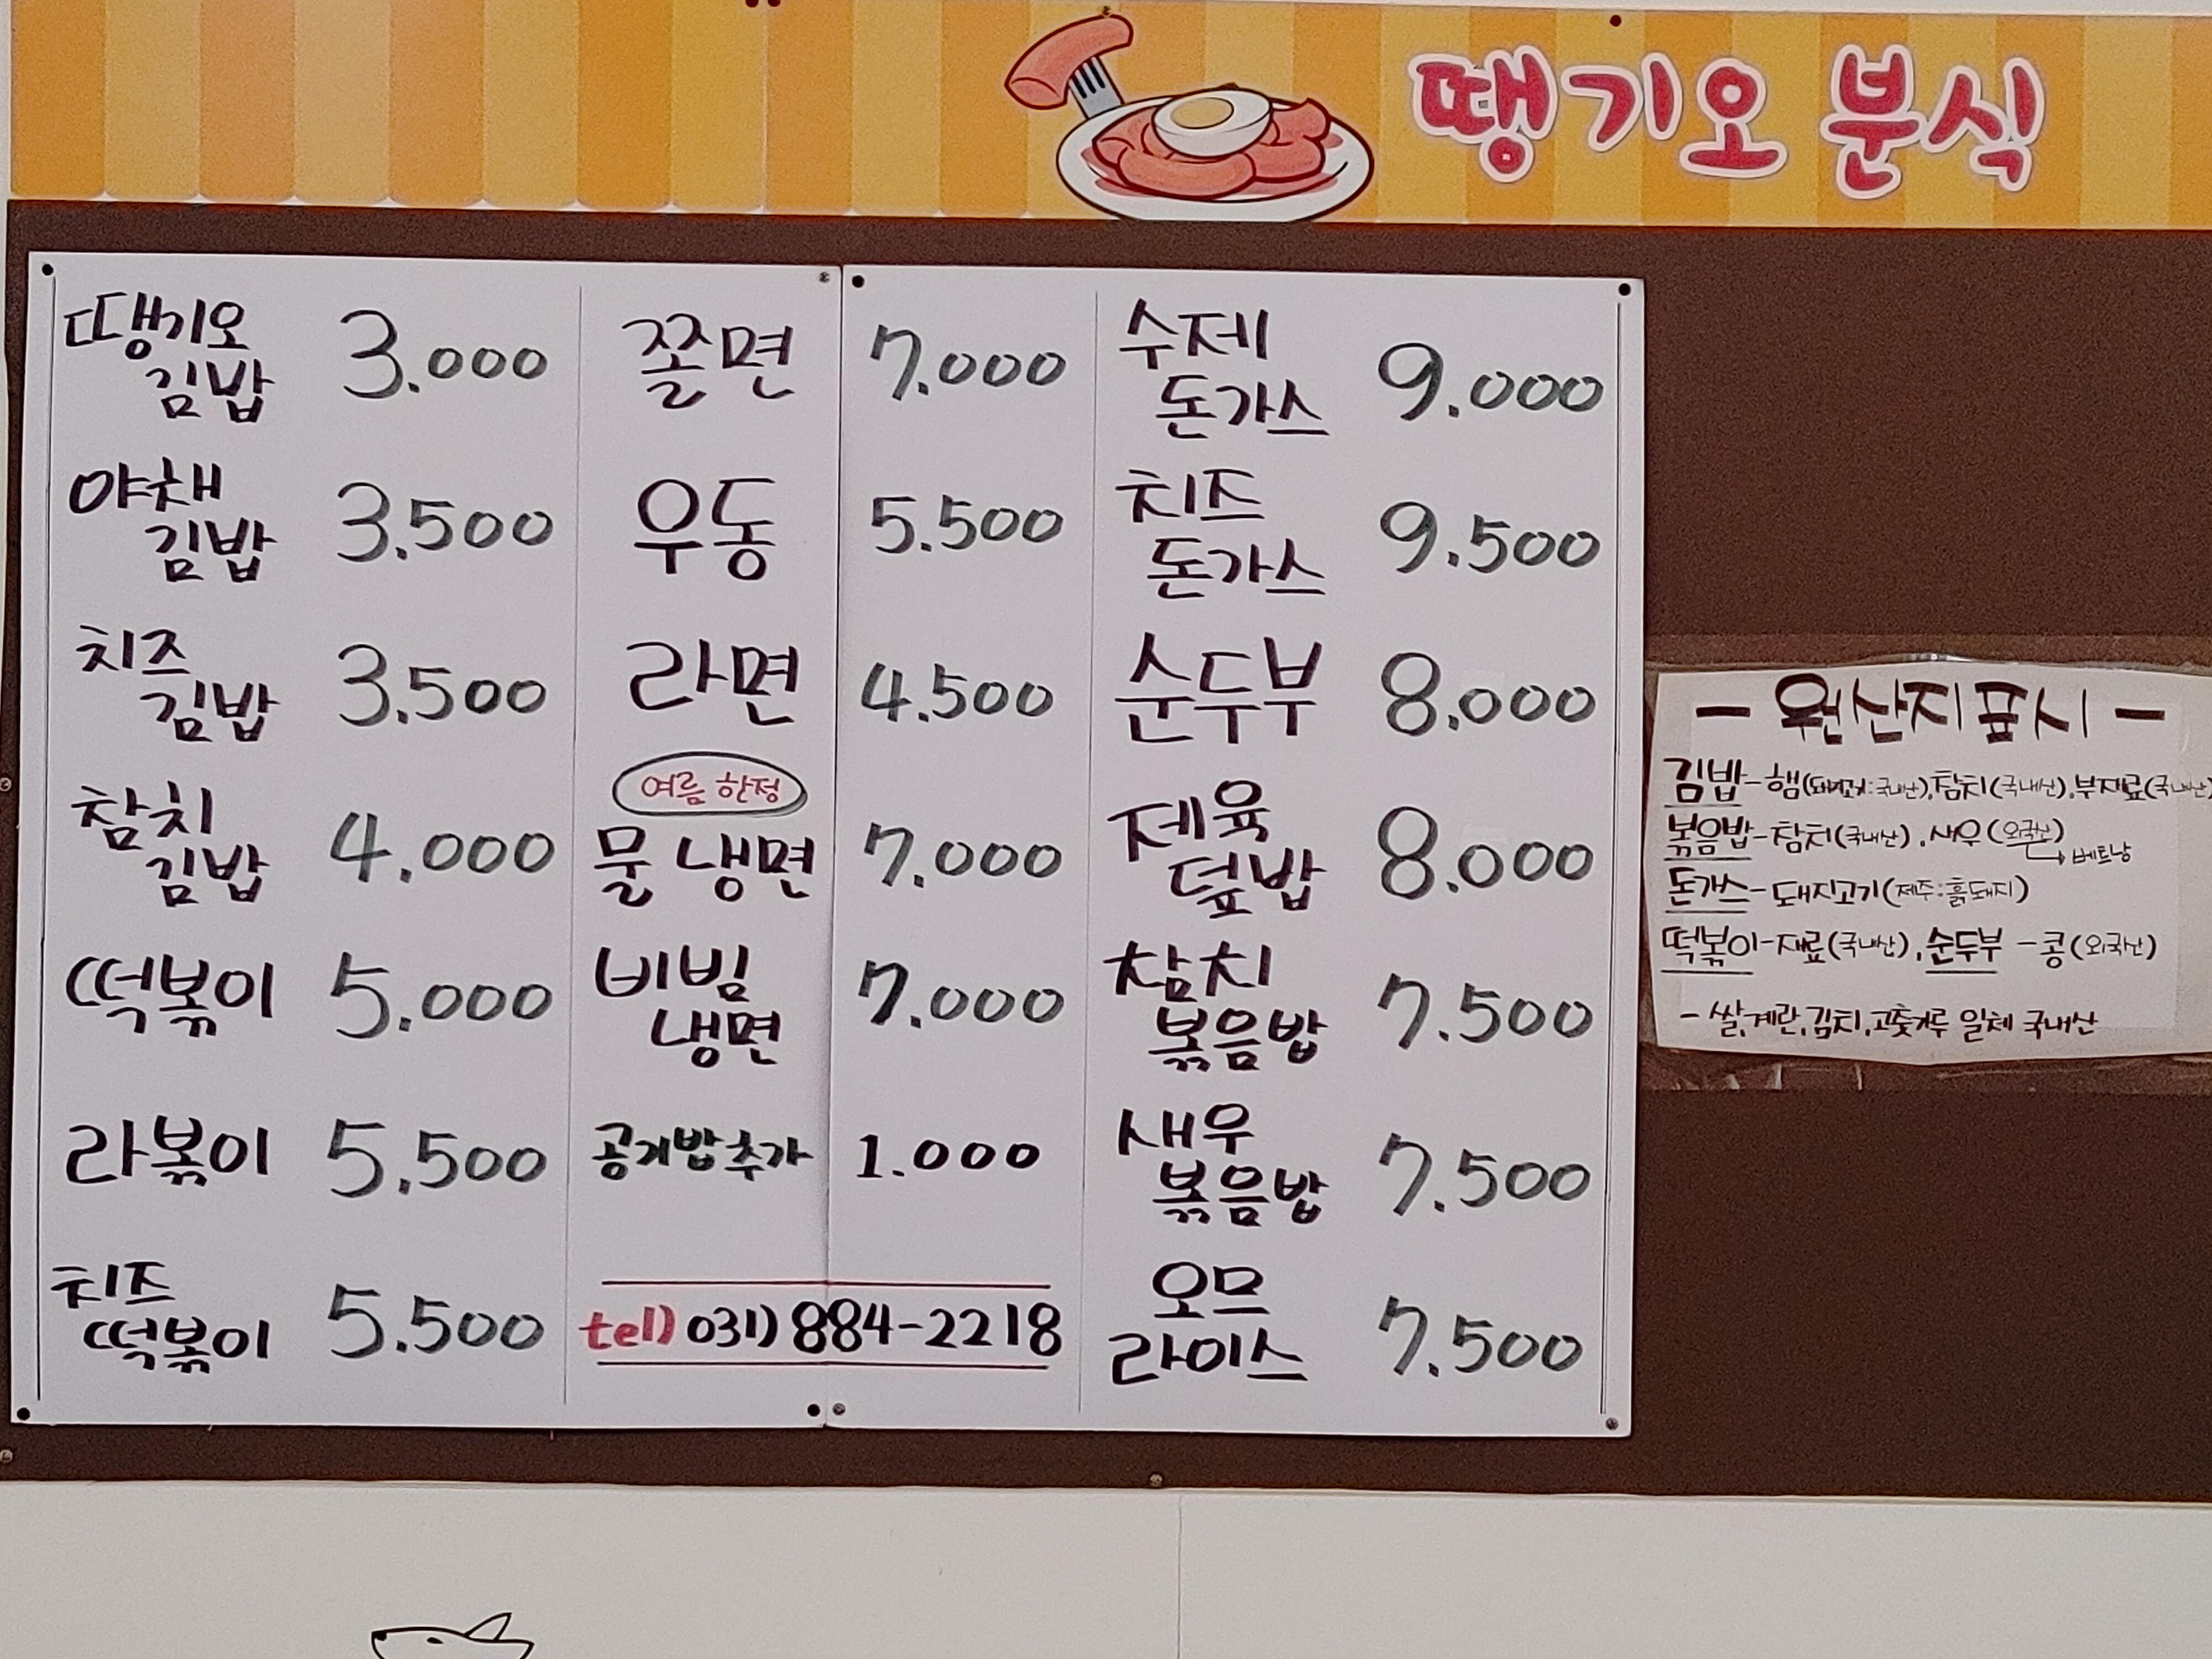 땡기오 분식
땡기오
김밥 3.000
야채
김밥 3.500
치즈
김밥 3.500
참치
김밥 4.000
떡볶이 5.000
라볶이 5.500
치즈
떡볶이 5.500
쫄면 7.000
우동 5.500
라면 4.500
여름 한정
물 냉면 7.000
비빔
냉면 7.000
공기밥 추가 1.000
tel) 031) 884-2218
수제
돈가스 9.000
치즈
돈가스 9.500
순두부 8.000
제육
덮밥 8.000
참치
볶음밥 7.500
새우
볶음밥 7.500
오므
라이스 7.500
- 원산지표시 -
김밥-햄(돼지고기:국내산),참치(국내산),부재료(국내산)
볶음밥-참치(국내산),새우(외국산)
→베트남
돈가스-돼지고기(제주:흙돼지)
떡볶이-재료(국내산),순두부-콩(외국산)
- 쌀,계란,김치,고춧가루 일체 국내산